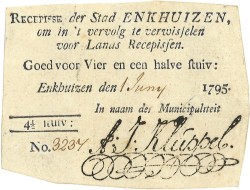 RECEPISSE der Stad ENKHUIZEN,
om in 't vervolg te verwisselen
voor Lands Recepissen.
Goed voor Vier en een halve stuiv:
Enkhuizen den 1 Juny 1795.
In naam der Municipaliteit
4½ stuiv:
No. 3237 A. J. Kluppel.